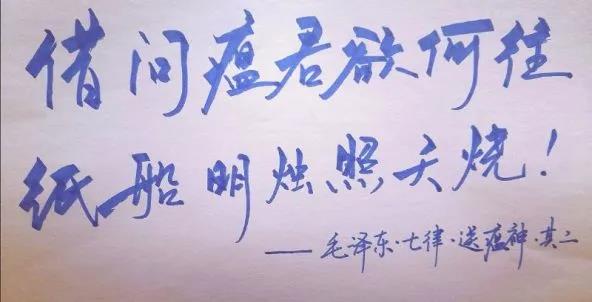 借问瘟君欲何往
纸船明烛照天烧！
——毛泽东·七律·送瘟神·其二